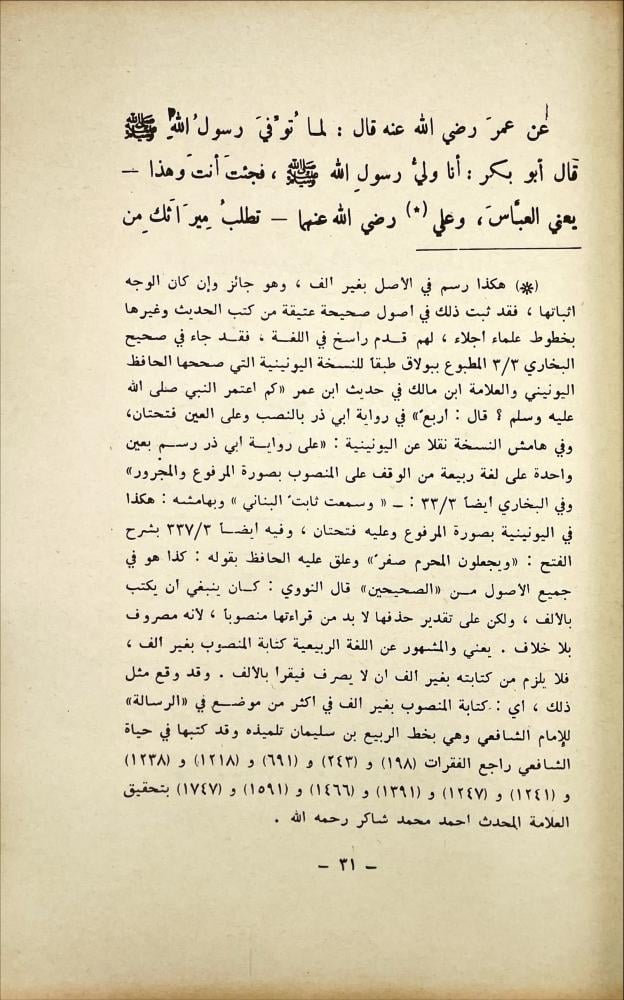 عَن عمرَ رضي الله عنه قال : لما تُوُفيَ رسولُ اللهِ ﷺ
قال أبو بكر : أنا وليُّ رسولِ الله ﷺ ، فجئتَ أنتَ وهذا —
يعني العبَّاسَ، وعلي (*) رضي الله عنهما — تطلبُ مِيرَاثَك مِن
(*) هكذا رسم في الاصل بغير الف ، وهو جائز وإن كان الوجه
اثباتها ، فقد ثبت ذلك في اصول صحيحة عتيقة من كتب الحديث وغيرها
بخطوط علماء اجلاء ، لهم قدم راسخ في اللغة ، فقد جاء في صحيح
البخاري ٣/٣ المطبوع ببولاق طبقاً للنسخة اليونينية التي صححها الحافظ
اليونيني والعلامة ابن مالك في حديث ابن عمر «كم اعتمر النبي صلى الله
عليه وسلم ؟ قال : اربعً» في رواية ابي ذر بالنصب وعلى العين فتحتان،
وفي هامش النسخة نقلا عن اليونينية : «على رواية ابي ذر رسم بعين
واحدة على لغة ربيعة من الوقف على المنصوب بصورة المرفوع والمجرور»
وفي البخاري ايضاً ٣٣/٣ : ــ « وسمعت ثابتً البناني » وبهامشه : هكذا
في اليونينية بصورة المرفوع وعليه فتحتان ، وفيه ايضــاً ٣٣٧/٣ بشرح
الفتح : «ويجعلون المحرم صفرً» وعلق عليه الحافظ بقوله : كذا هو في
جميع الاصول مــن «الصحيحين» قال النووي : كــان ينبغي ان يكتب
بالالف ، ولكن على تقدير حذفها لا بد من قراءتها منصوباً ، لأنه مصروف
بلا خلاف . يعني والمشهور عن اللغة الربيعية كتابة المنصوب بغير الف ،
فلا يلزم من كتابته بغير الف ان لا يصرف فيقرأ بالالف . وقد وقع مثل
ذلك ، اي : كتابة المنصوب بغير الف في اكثر من موضــع في «الرسالة»
للإمام الشافعي وهي بخط الربيع بن سليمان تلميذه وقد كتبها في حياة
الشافعي راجع الفقرات (١٩٨) و (٢٤٣) و (٦٩١) و (١٢١٨) و (١٢٣٨)
و (١٢٤١) و (١٢٤٧) و (١٣٩١) و (١٤٦٦) و (١٥٩١) و (١٧٤٧) بتحقيق
العلامة المحدث احمد محمد شاكر رحمه الله .
– ٣١ –